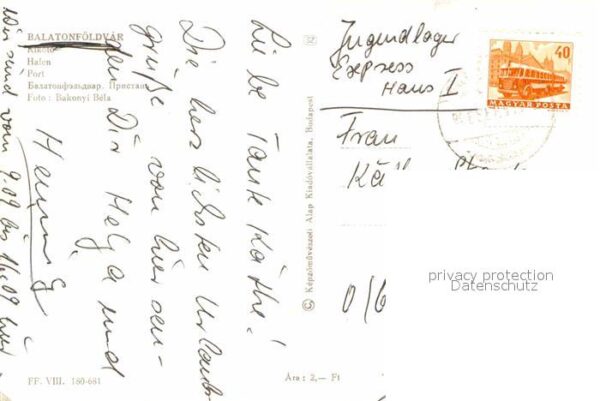 BALATONFÖLDVÁR
Kikötő
Hafen
Port
Балатонфэльдвар. Пристань
Foto: Bakonyi Béla
Liebe Tante Käthe!
Die herzlichsten Urlaubs-
grüße von hier sen-
den Dir Helga und
Henning
Wir sind vom 9.09 bis 16.09 hier
FF. VIII. 180-681
Ára: 2,— Ft
32
© Képzőművészeti Alap Kiadóvállalata, Budapest
Jugendlager
Express
Haus I
Frau
40
MAGYAR POSTA
privacy protection
Datenschutz